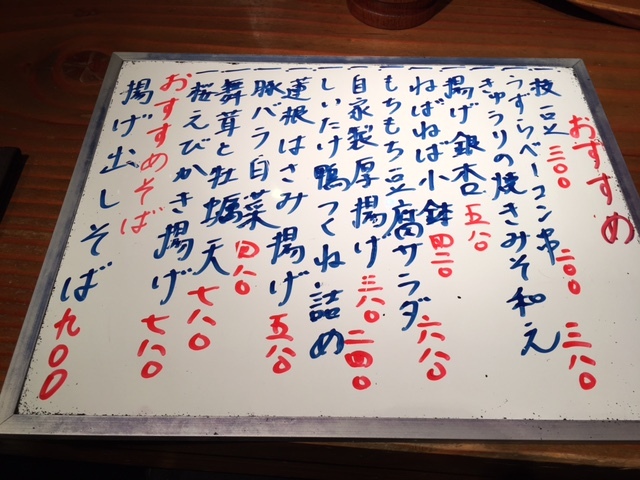 おすすめ
枝豆 三〇〇
うずらベーコン串 二〇〇
きゅうりの焼きみそ和え 三八〇
揚げ銀杏 五八〇
ねばねば小鉢 四二〇
もちもち豆腐サラダ 六八〇
自家製厚揚げ 三八〇
しいたけ鴨つくね詰め 二四〇
蓮根はさみ揚げ 五八〇
豚バラ白菜 四八〇
舞茸と牡蠣天 七八〇
桜えびかき揚げ 七八〇
おすすめそば
揚げ出しそば 九〇〇